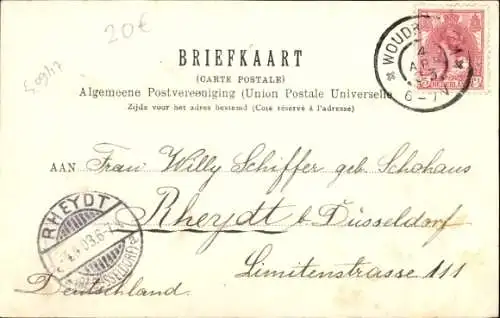 20€
BRIEFKAART
(CARTE POSTALE)
Algemeene Postvereeniging (Union Postale Universelle
Zijde voor het adres bestemd (Côté réservé à l'adresse)
AAN Frau Willy Schiffer geb. Schohaus
Rheydt b. Düsseldorf
Limitenstrasse 111
Deutschland.
RHEYDT